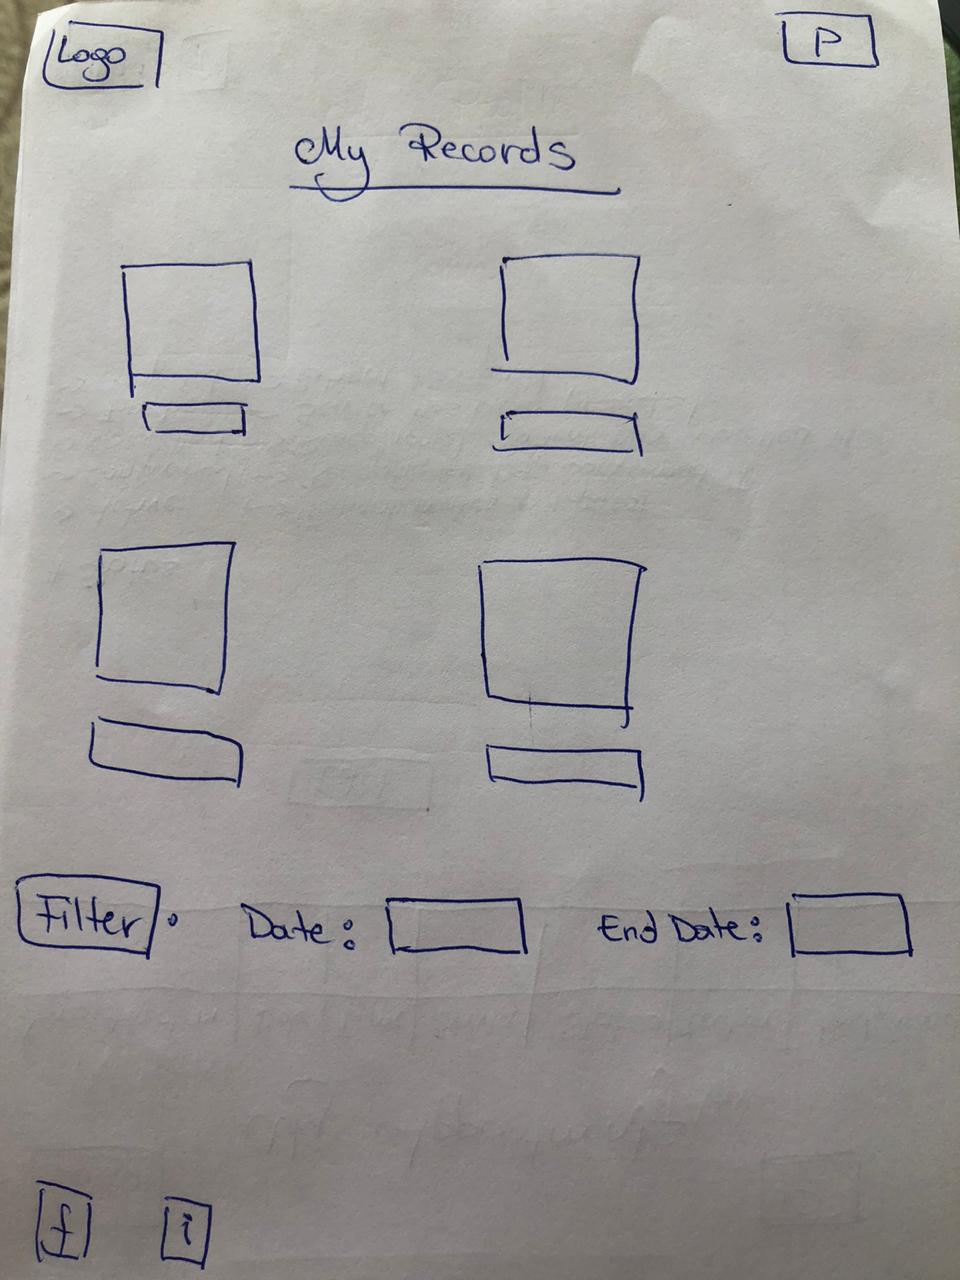 Logo
P
My Records
Filter: Date: End Date:
f i